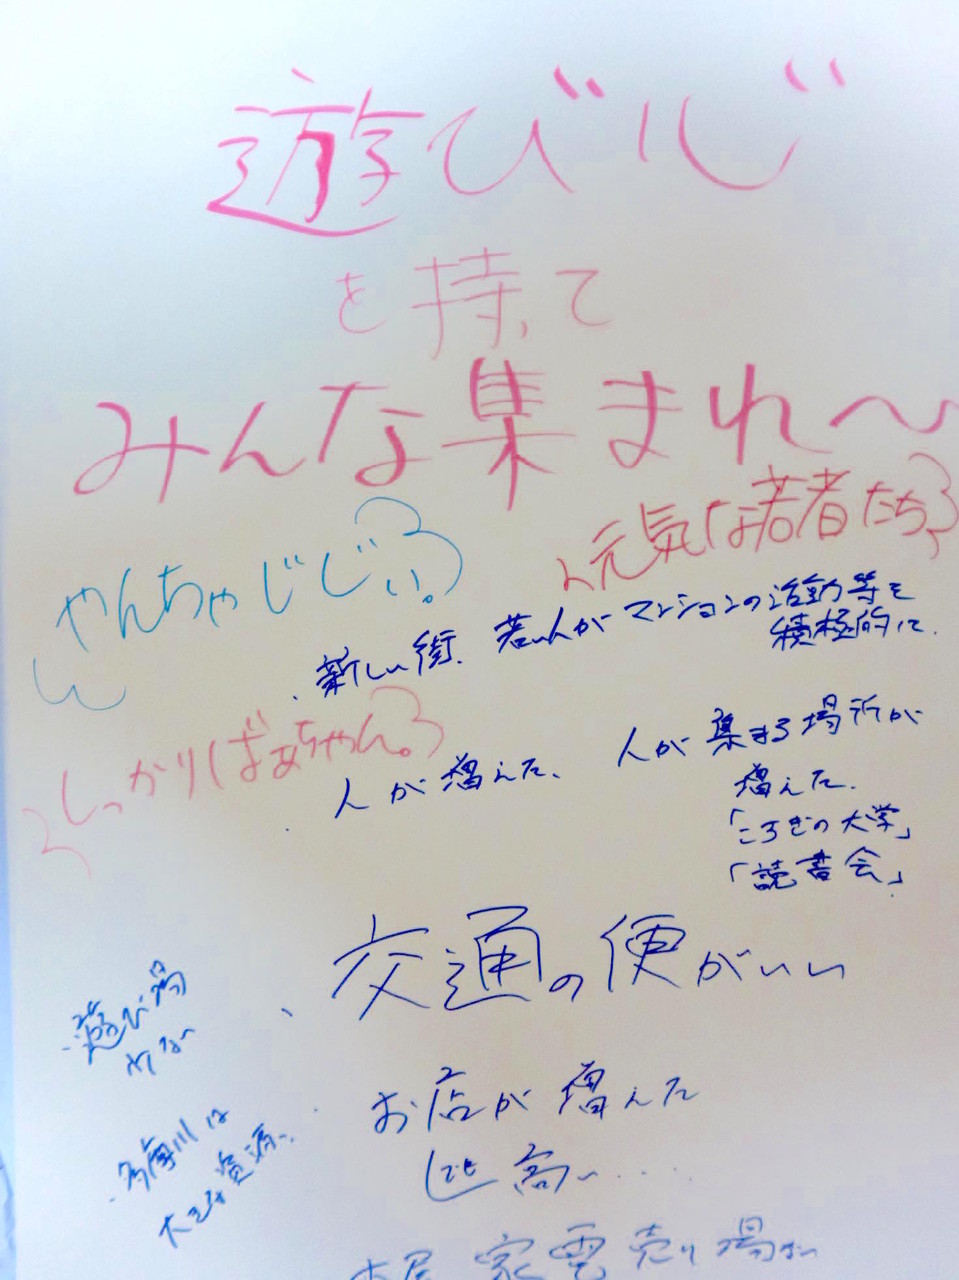 遊び心
を持って
みんな集まれ〜
元気な若者たち
やんちゃじじい。
・新しい街、若い人がマンションの活動等を
積極的に。
しっかりばあちゃん。
・人が増えた、人が集まる場所が
増えた。
「ころぎの大学」
「読書会」
・交通の便がいい
・遊び場
がない
・お店が増えた
でも高い....
・多摩川は
大きな資源。
本屋 家電売り場がない